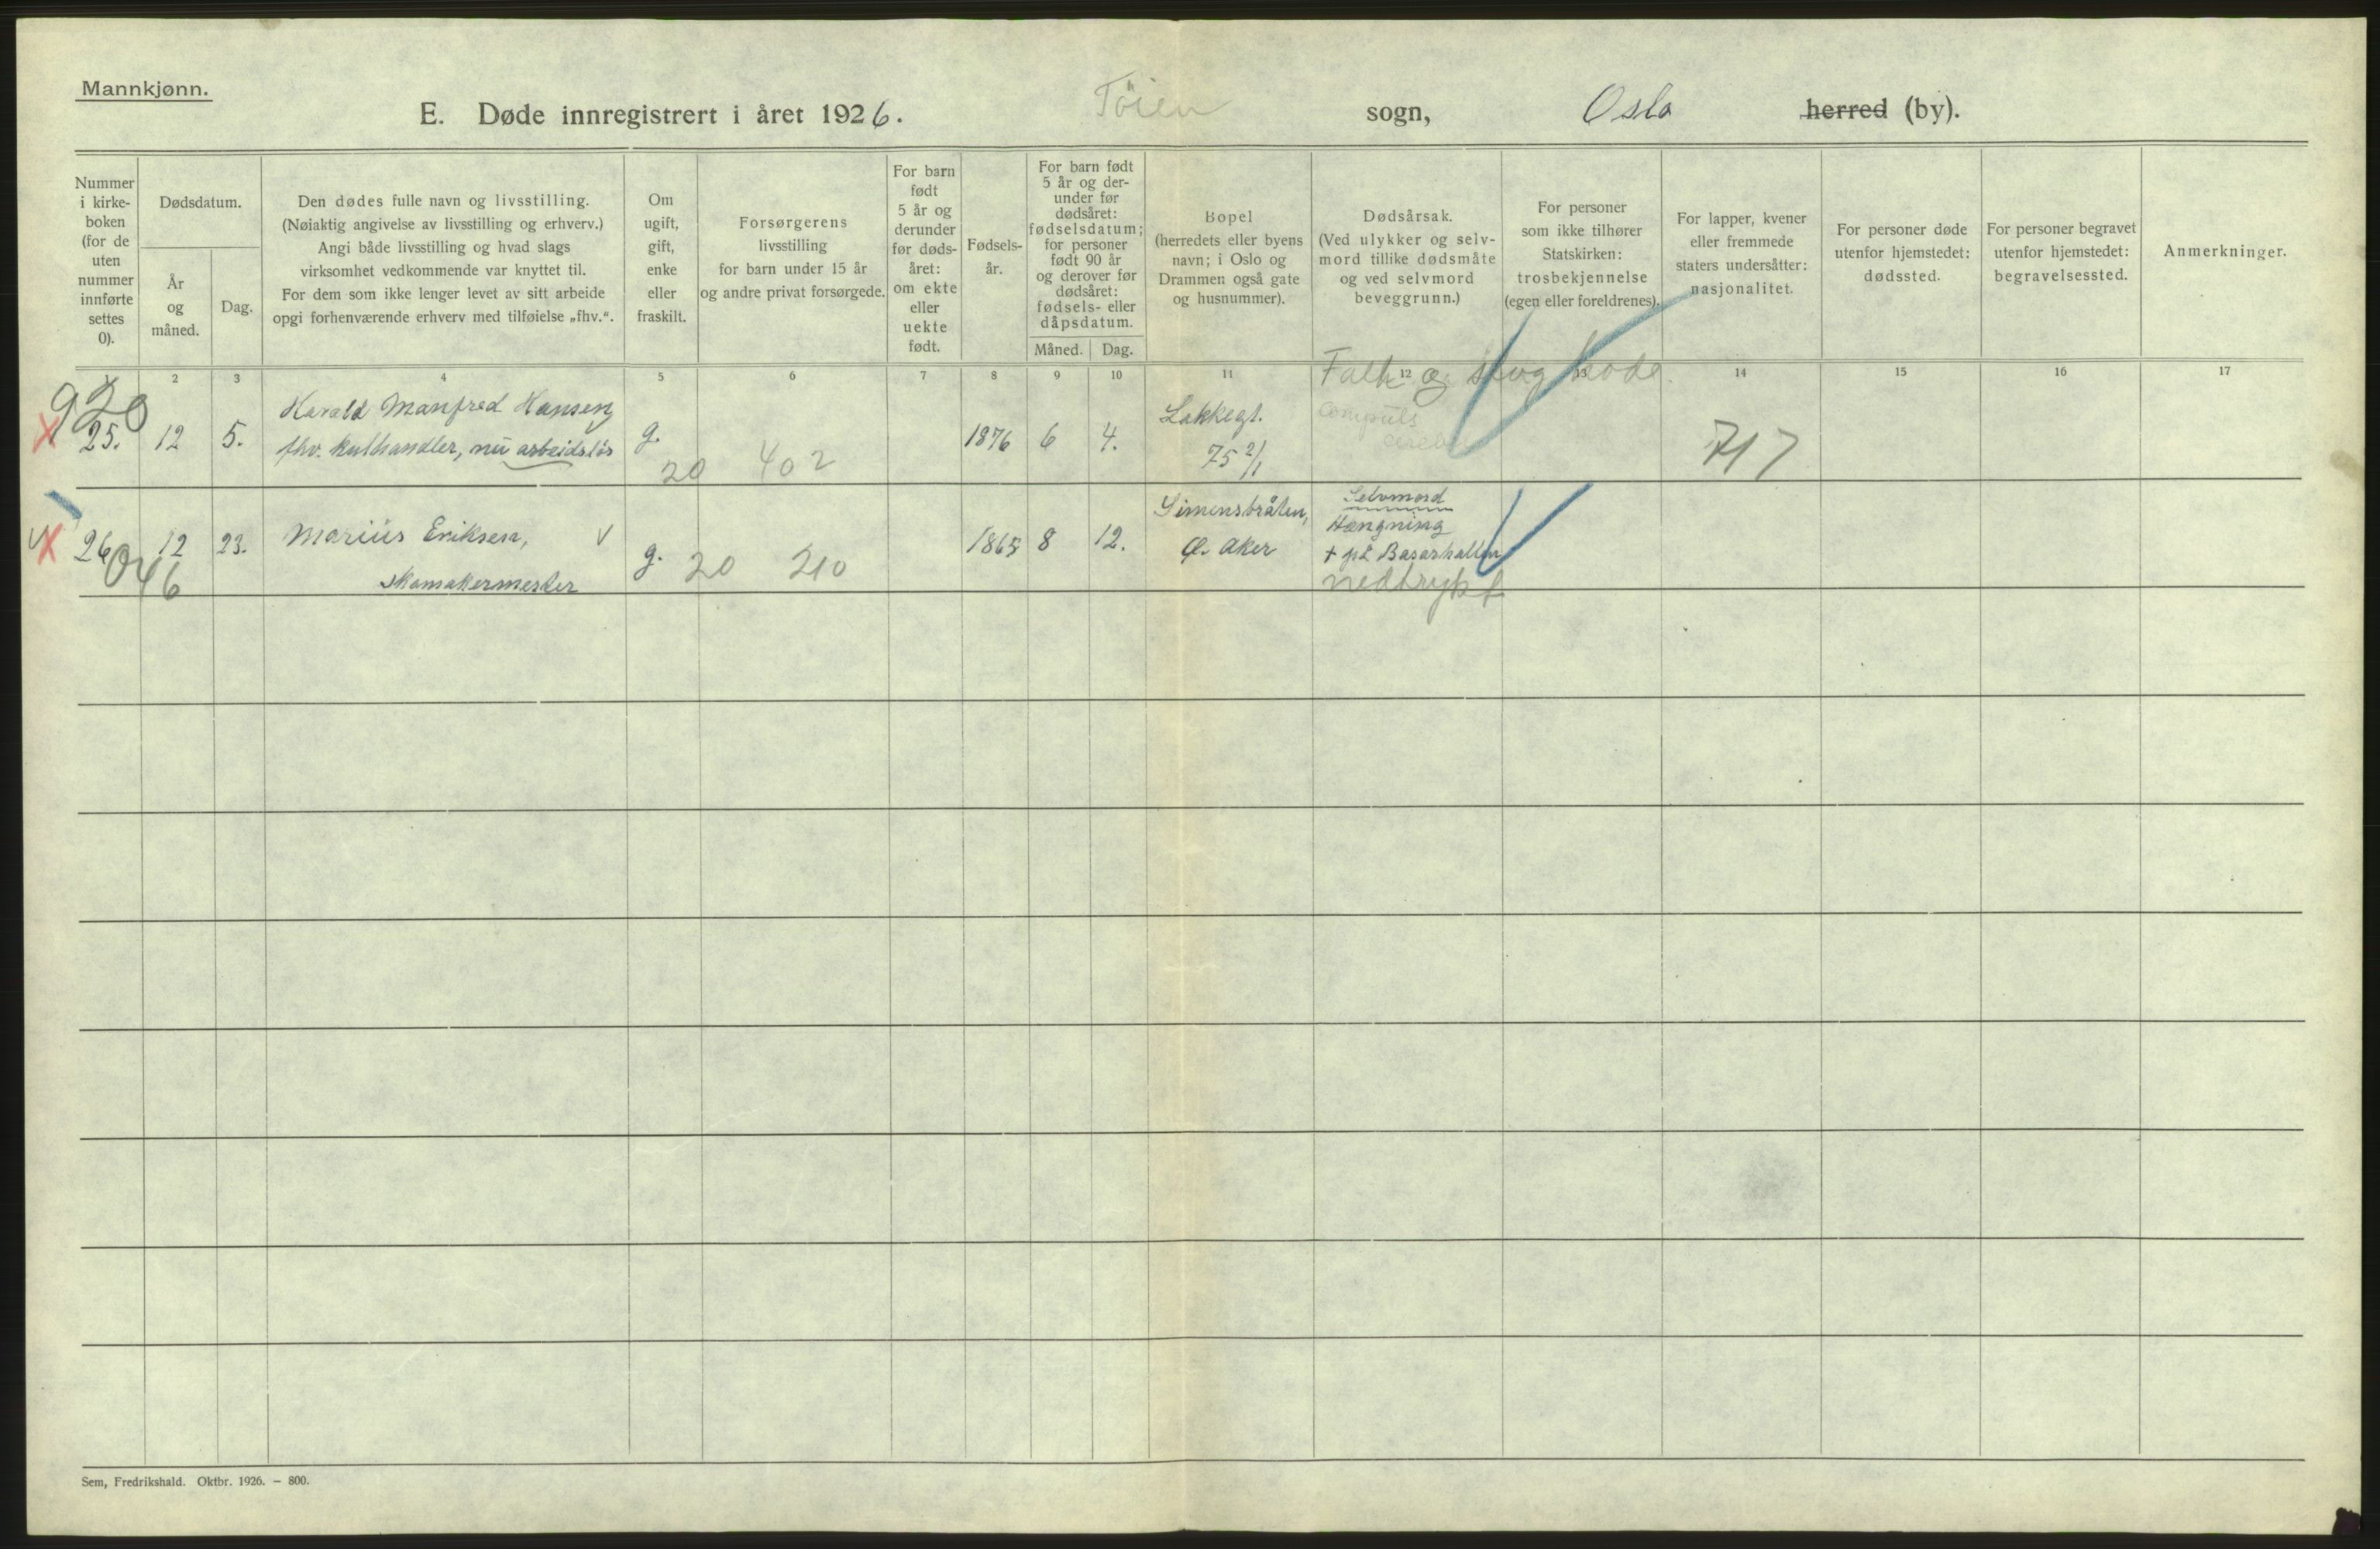 Mannkjønn.
E. Døde innregistrert i året 1926. Tøien sogn, Oslo herred (by).
Nummer
i kirke-
boken
(for de
uten
nummer
innførte
settes
0).
Dødsdatum.
År
og
måned.
Dag.
Den dødes fulle navn og livsstilling.
(Nøiaktig angivelse av livsstilling og erhverv.)
Angi både livsstilling og hvad slags
virksomhet vedkommende var knyttet til.
For dem som ikke lenger levet av sitt arbeide
opgi forhenværende erhverv med tilføielse „fhv.“.
Om
ugift,
gift,
enke
eller
fraskilt.
Forsørgerens
livsstilling
for barn under 15 år
og andre privat forsørgede.
For barn
født
5 år og
derunder
før døds-
året:
om ekte
eller
uekte
født.
Fødsels-
år.
For barn født
5 år og der-
under før
dødsåret:
fødselsdatum;
for personer
født 90 år
og derover før
dødsåret:
fødsels- eller
dåpsdatum.
Måned.
Dag.
Bopel
(herredets eller byens
navn; i Oslo og
Drammen også gate
og husnummer).
Dødsårsak.
(Ved ulykker og selv-
mord tillike dødsmåte
og ved selvmord
beveggrunn.)
For personer
som ikke tilhører
Statskirken:
trosbekjennelse
(egen eller foreldrenes).
For lapper, kvener
eller fremmede
staters undersåtter:
nasjonalitet.
For personer døde
utenfor hjemstedet:
dødssted.
For personer begravet
utenfor hjemstedet:
begravelsessted.
Anmerkninger.
1 2 3 4 5 6 7 8 9 10 11 12 13 14 15 16 17
920
25. 12 5.
Harald Manfred Hansen
fhv. kulhandler, nu arbeidsløs
g.
20 402
1876 6 4.
Lakkegt.
75 2/1
Falk og
717
26 12 23.
046
Marius Eriksen, v
skomakermester
g. 20 210
1865 8 12.
Simensbråten,
Ø. Aker
Selvmord
Hængning
+ på Basarhallen
nedtrykt
Sem, Fredrikshald. Oktbr. 1926. – 800.